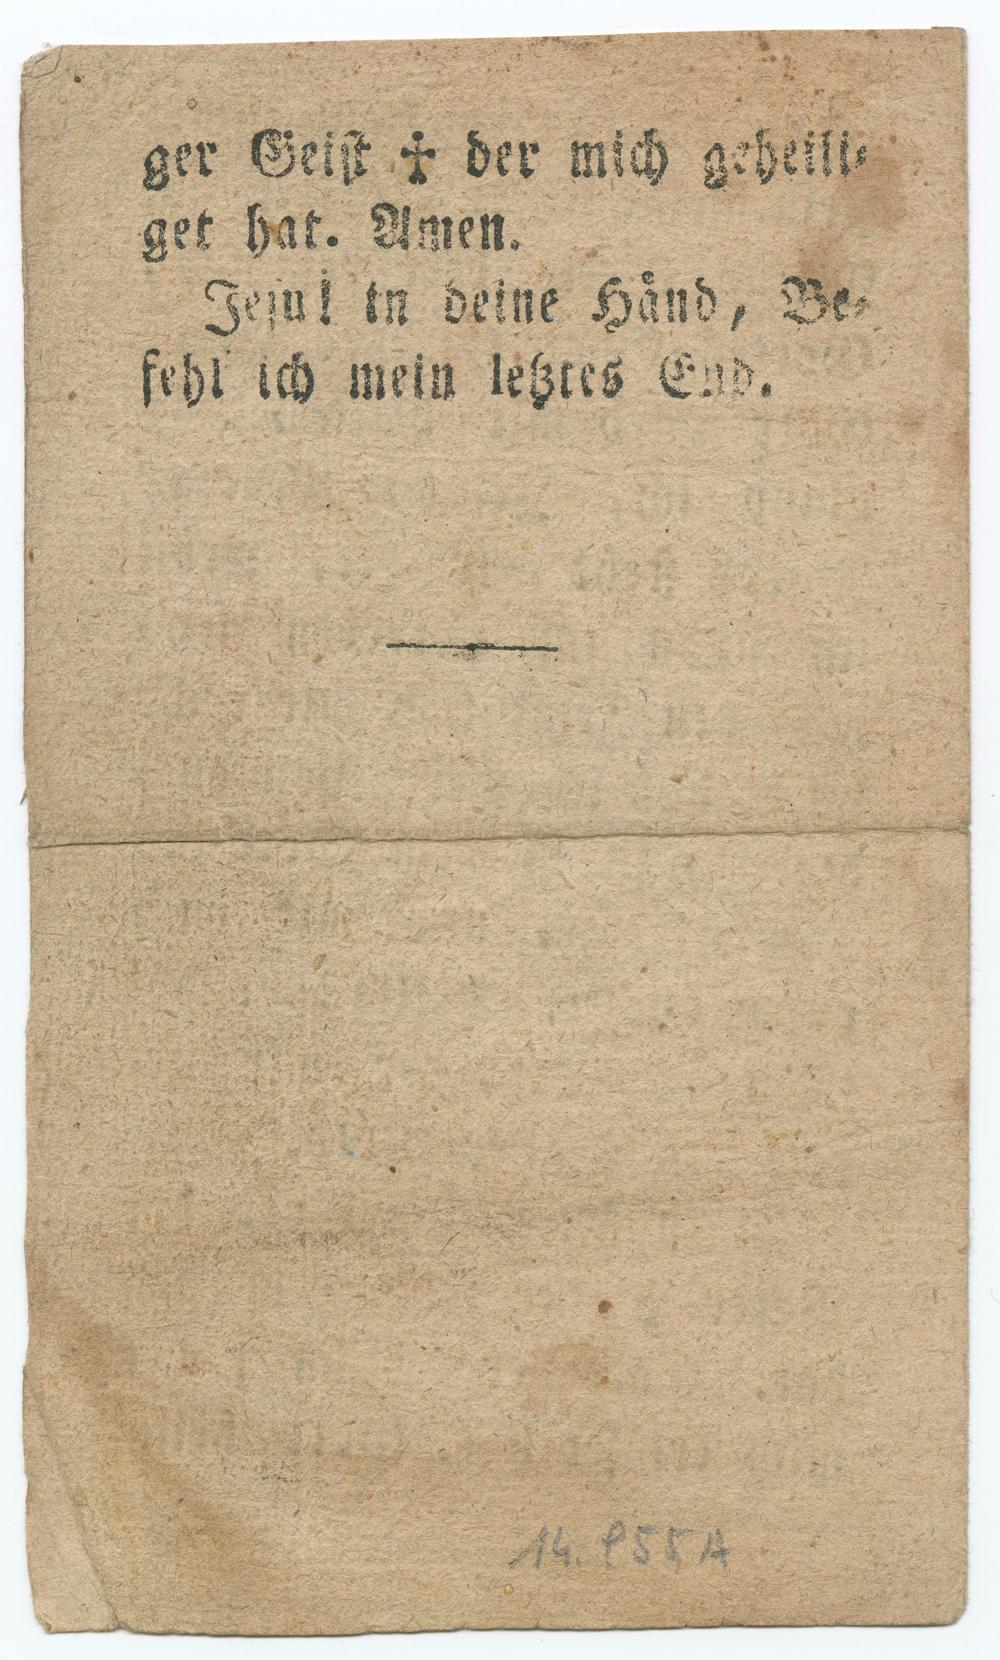 ger Geiſt ✠ der mich geheili⸗
get hat. Amen.
Jeſu! in deine Hånd, Be⸗
fehl ich mein letztes End.
14. 955 A